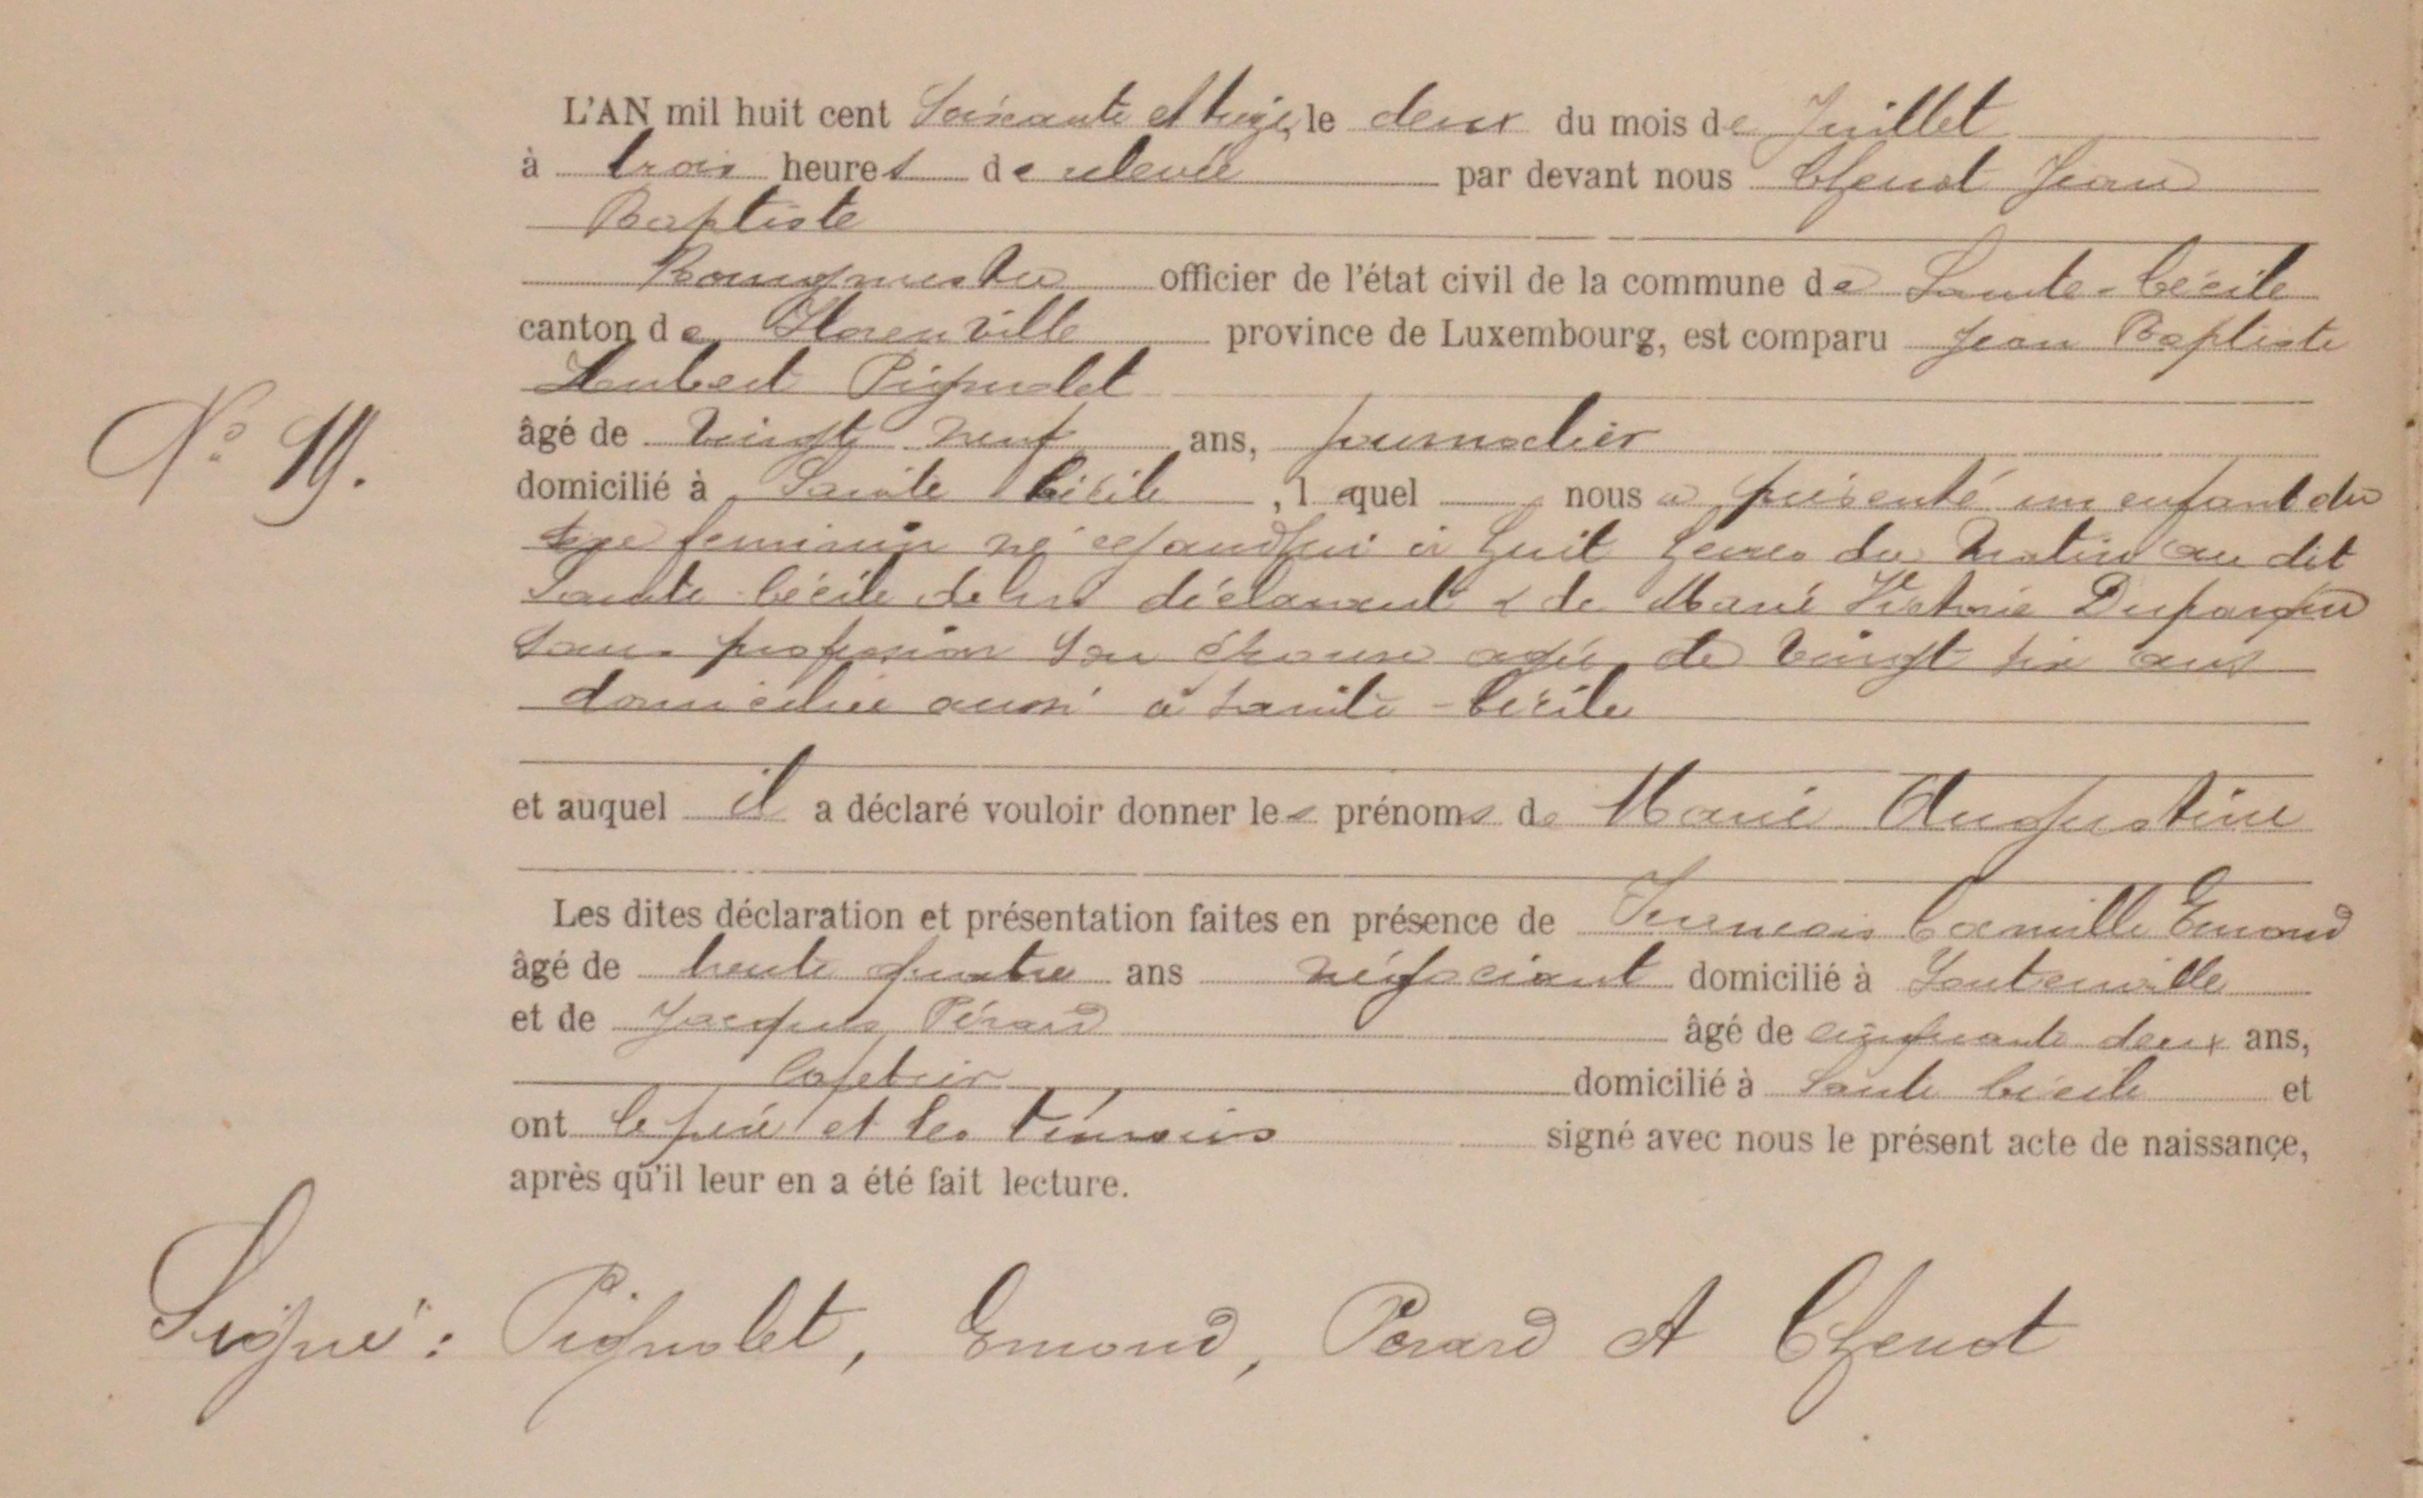 L'AN mil huit cent Soixante et treize, le deux du mois de Juillet
à trois heures de relevée par devant nous Chenot Jean
Baptiste
Bourgmestre officier de l'état civil de la commune de Sainte-Cécile
canton de Florenville province de Luxembourg, est comparu Jean Baptiste
Lambert Pignolet
N° 19.
âgé de vingt neuf ans, journalier
domicilié à Sainte Cécile, lequel nous a présenté un enfant du
sexe feminin né aujourd'hui à huit heures du matin au dit
Sainte Cécile de lui déclarant & de Marie Victorie
sans profession son épouse agée de vingt six ans
domiciliée aussi à Sainte-Cécile
et auquel il a déclaré vouloir donner les prénoms de Marie Augustine
Les dites déclaration et présentation faites en présence de Francois Camille Emond
âgé de trente quatre ans négociant domicilié à Fontenoille
et de Jacques Pérard âgé de cinquante deux ans,
Cafetier domicilié à Sainte Cécile et
ont le père et les témoins signé avec nous le présent acte de naissance,
après qu'il leur en a été fait lecture.
Signé: Pignolet, Emond, Perard et Chenot